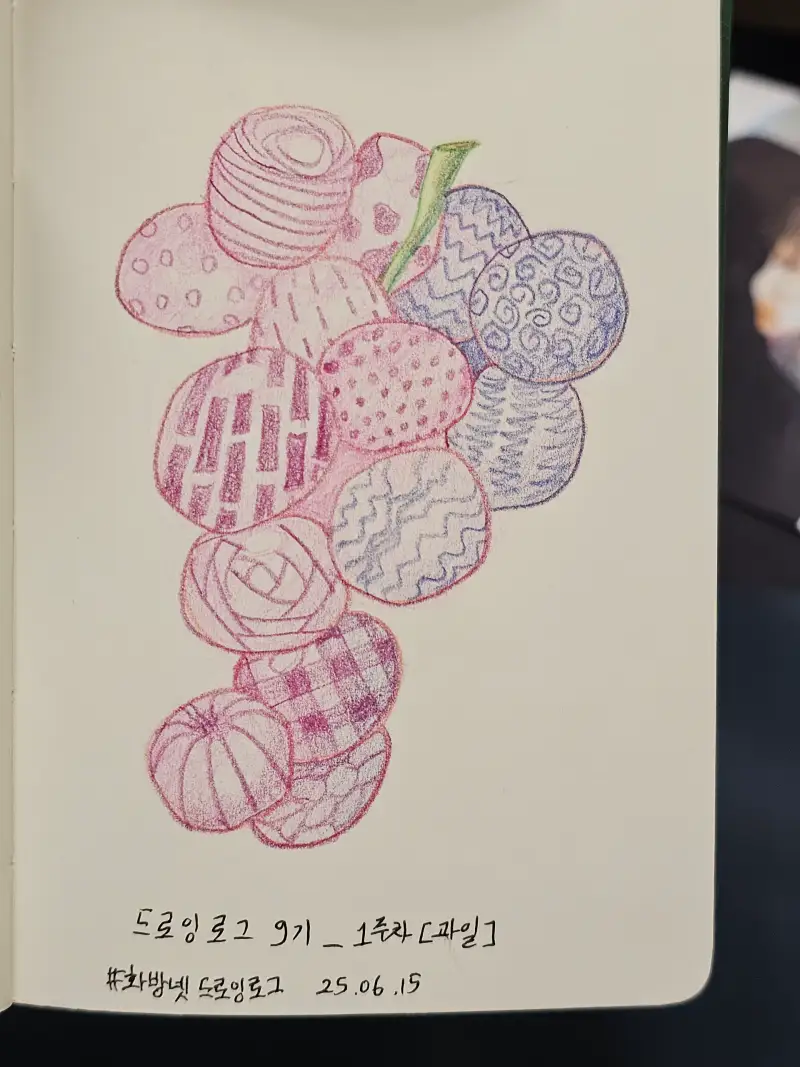 드로잉로그 9기 _ 1주차 [과일]
#화방넷 드로잉로그 25.06.15